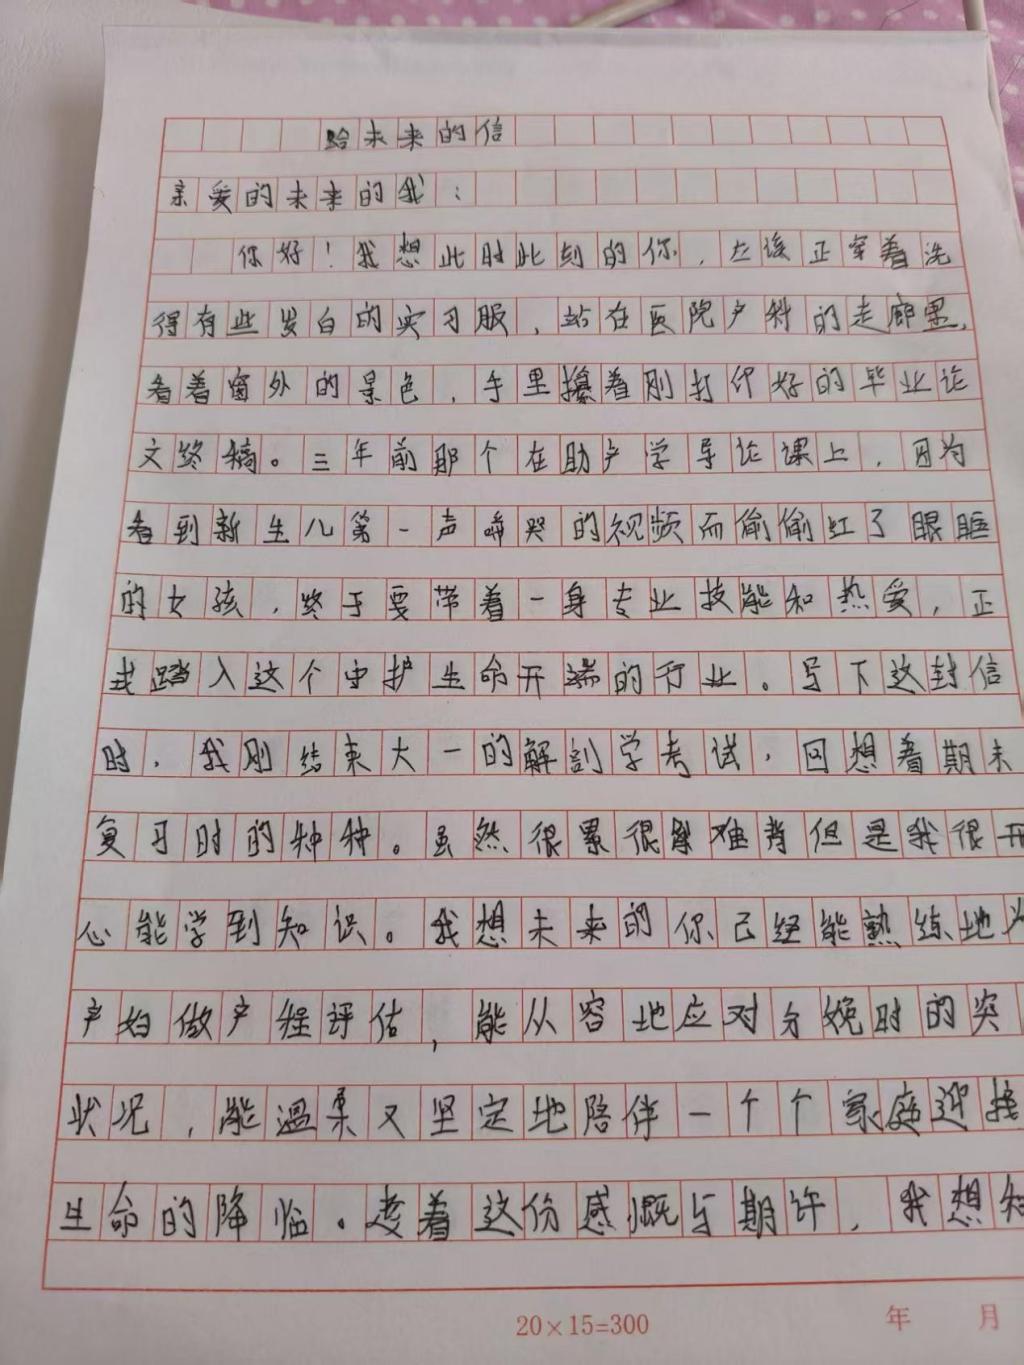 给未来的信
亲爱的未来的我：
你好！我想此时此刻的你，应该正穿着洗
得有些发白的实习服，站在医院产科的走廊里，
看着窗外的景色，手里攥着刚打印好的毕业论
文终稿。三年前那个在助产学导论课上，因为
看到新生儿第一声啼哭的视频而偷偷红了眼眶
的女孩，终于要带着一身专业技能和热爱，正
式踏入这个守护生命开端的行业。写下这封信
时，我刚结束大一的解剖学考试，回想着期末
复习时的种种。虽然很累很累难背但是我很开
心能学到知识。我想未来的你已经能熟练地为
产妇做产程评估，能从容地应对分娩时的突
状况，能温柔又坚定地陪伴一个个家庭迎接
生命的降临。凌着这份感慨与期许，我想知
20×15=300
年 月